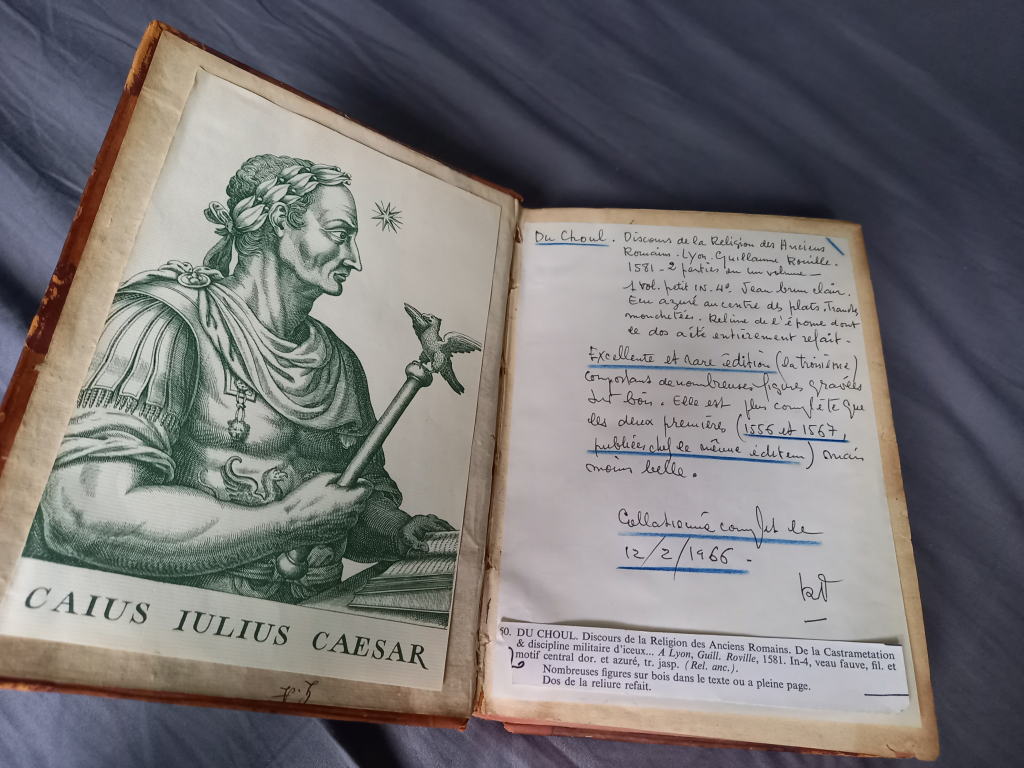 CAIUS IULIUS CAESAR
Du Choul. Discours de la Religion des Anciens
Romains. Lyon. Guillaume Roville.
1581 - 2 parties en un volume -
1 Vol. petit in. 4º. Veau brun clair.
Fer azuré au centre des plats. Tranches
mouchetées. Reliure de l'époque dont
le dos a été entièrement refait -
Excellente et rare édition (la troisième)
comportant de nombreuses figures gravées
sur bois. Elle est plus complète que
les deux premières (1556 et 1567,
publiées chez le même éditeur) mais
moins belle.
Collationné complet le
12/2/1966 -
50. DU CHOUL. Discours de la Religion des Anciens Romains. De la Castrametation
& discipline militaire d'iceux... A Lyon, Guill. Roville, 1581. In-4, veau fauve, fil. et
motif central dor. et azuré, tr. jasp. (Rel. anc.).
Nombreuses figures sur bois dans le texte ou a pleine page.
Dos de la reliure refait.